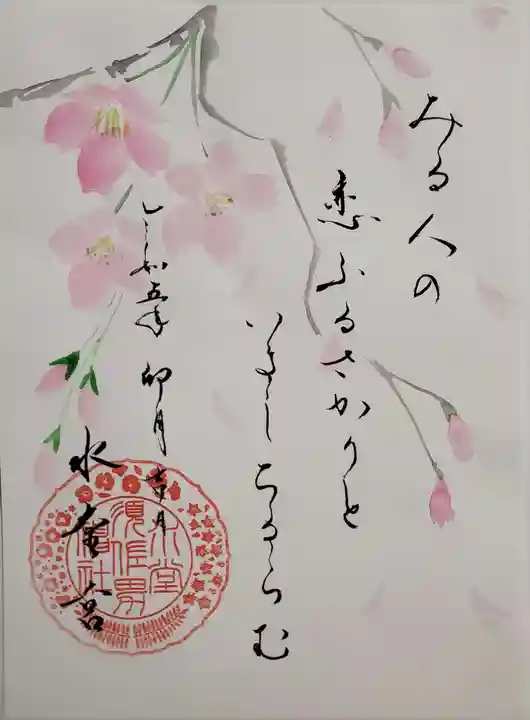 みる人の
恋ふるさかりと
いまし ちるらむ
令和五年 卯月 吉日
水堂須佐男神社